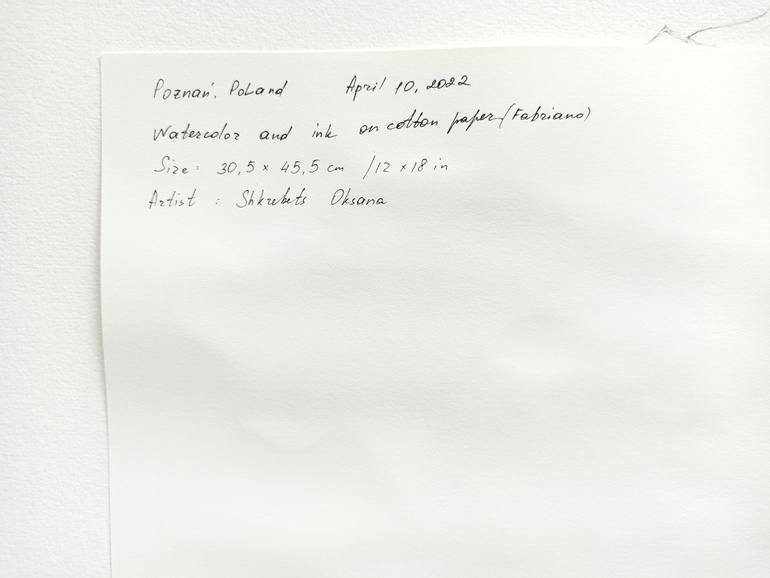 Poznań. Poland April 10, 2022
Watercolor and ink on cotton paper (Fabriano)
Size: 30,5 x 45,5 cm /12 x 18 in
Artist : Shkrebets Oksana